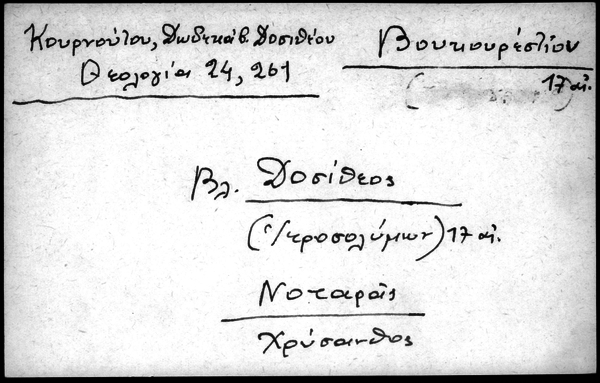 Κουρνούτου, Δωδεκάβ. Δοσιθέου
Θεολογία 24, 261
Βουκουρέστιον
17 αἰ.
Βλ. Δοσίθεος
(Ἱεροσολύμων) 17 αἰ.
Νοταρᾶς
Χρύσανθος